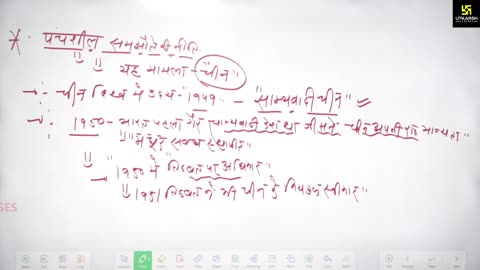 UTKARSH
* पंचशील समझौते की नीति
यह मामला - "चीन"
चीन विश्व में उदय - "1949" - "साम्यवादी चीन"
1950 - भारत पहला गैर साम्यवादी देश था जिसने चीन
"1950 में" तिब्बत पर अधिकार"
"1951 तिब्बत ने भी चीन के नियंत्रण स्वीकार"
SES